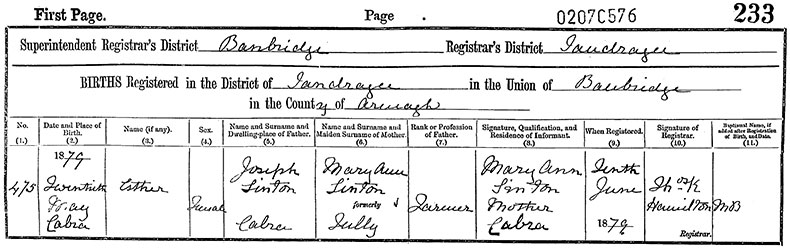 First Page. Page . 0207C576 233
Superintendent Registrar's District Banbridge Registrar's District Tandragee
BIRTHS Registered in the District of Tandragee in the Union of Banbridge
in the County of Armagh
No. (1.) Date and Place of Birth. (2.) Name (if any). (3.) Sex. (4.) Name and Surname and Dwelling-place of Father. (5.) Name and Surname and Maiden Surname of Mother. (6.) Rank or Profession of Father. (7.) Signature, Qualification, and Residence of Informant. (8.) When Registered. (9.) Signature of Registrar. (10.) Baptismal Name, if added after Registration of Birth, and Date. (11.)
1879 Joseph Mary Ann Mary Ann Tenth
475 Twentieth Esther Sinton Sinton Sinton June Thos K
May Female formerly Farmer Mother Hamilton MB
Cabra Cabra Cabra 1879 Registrar.